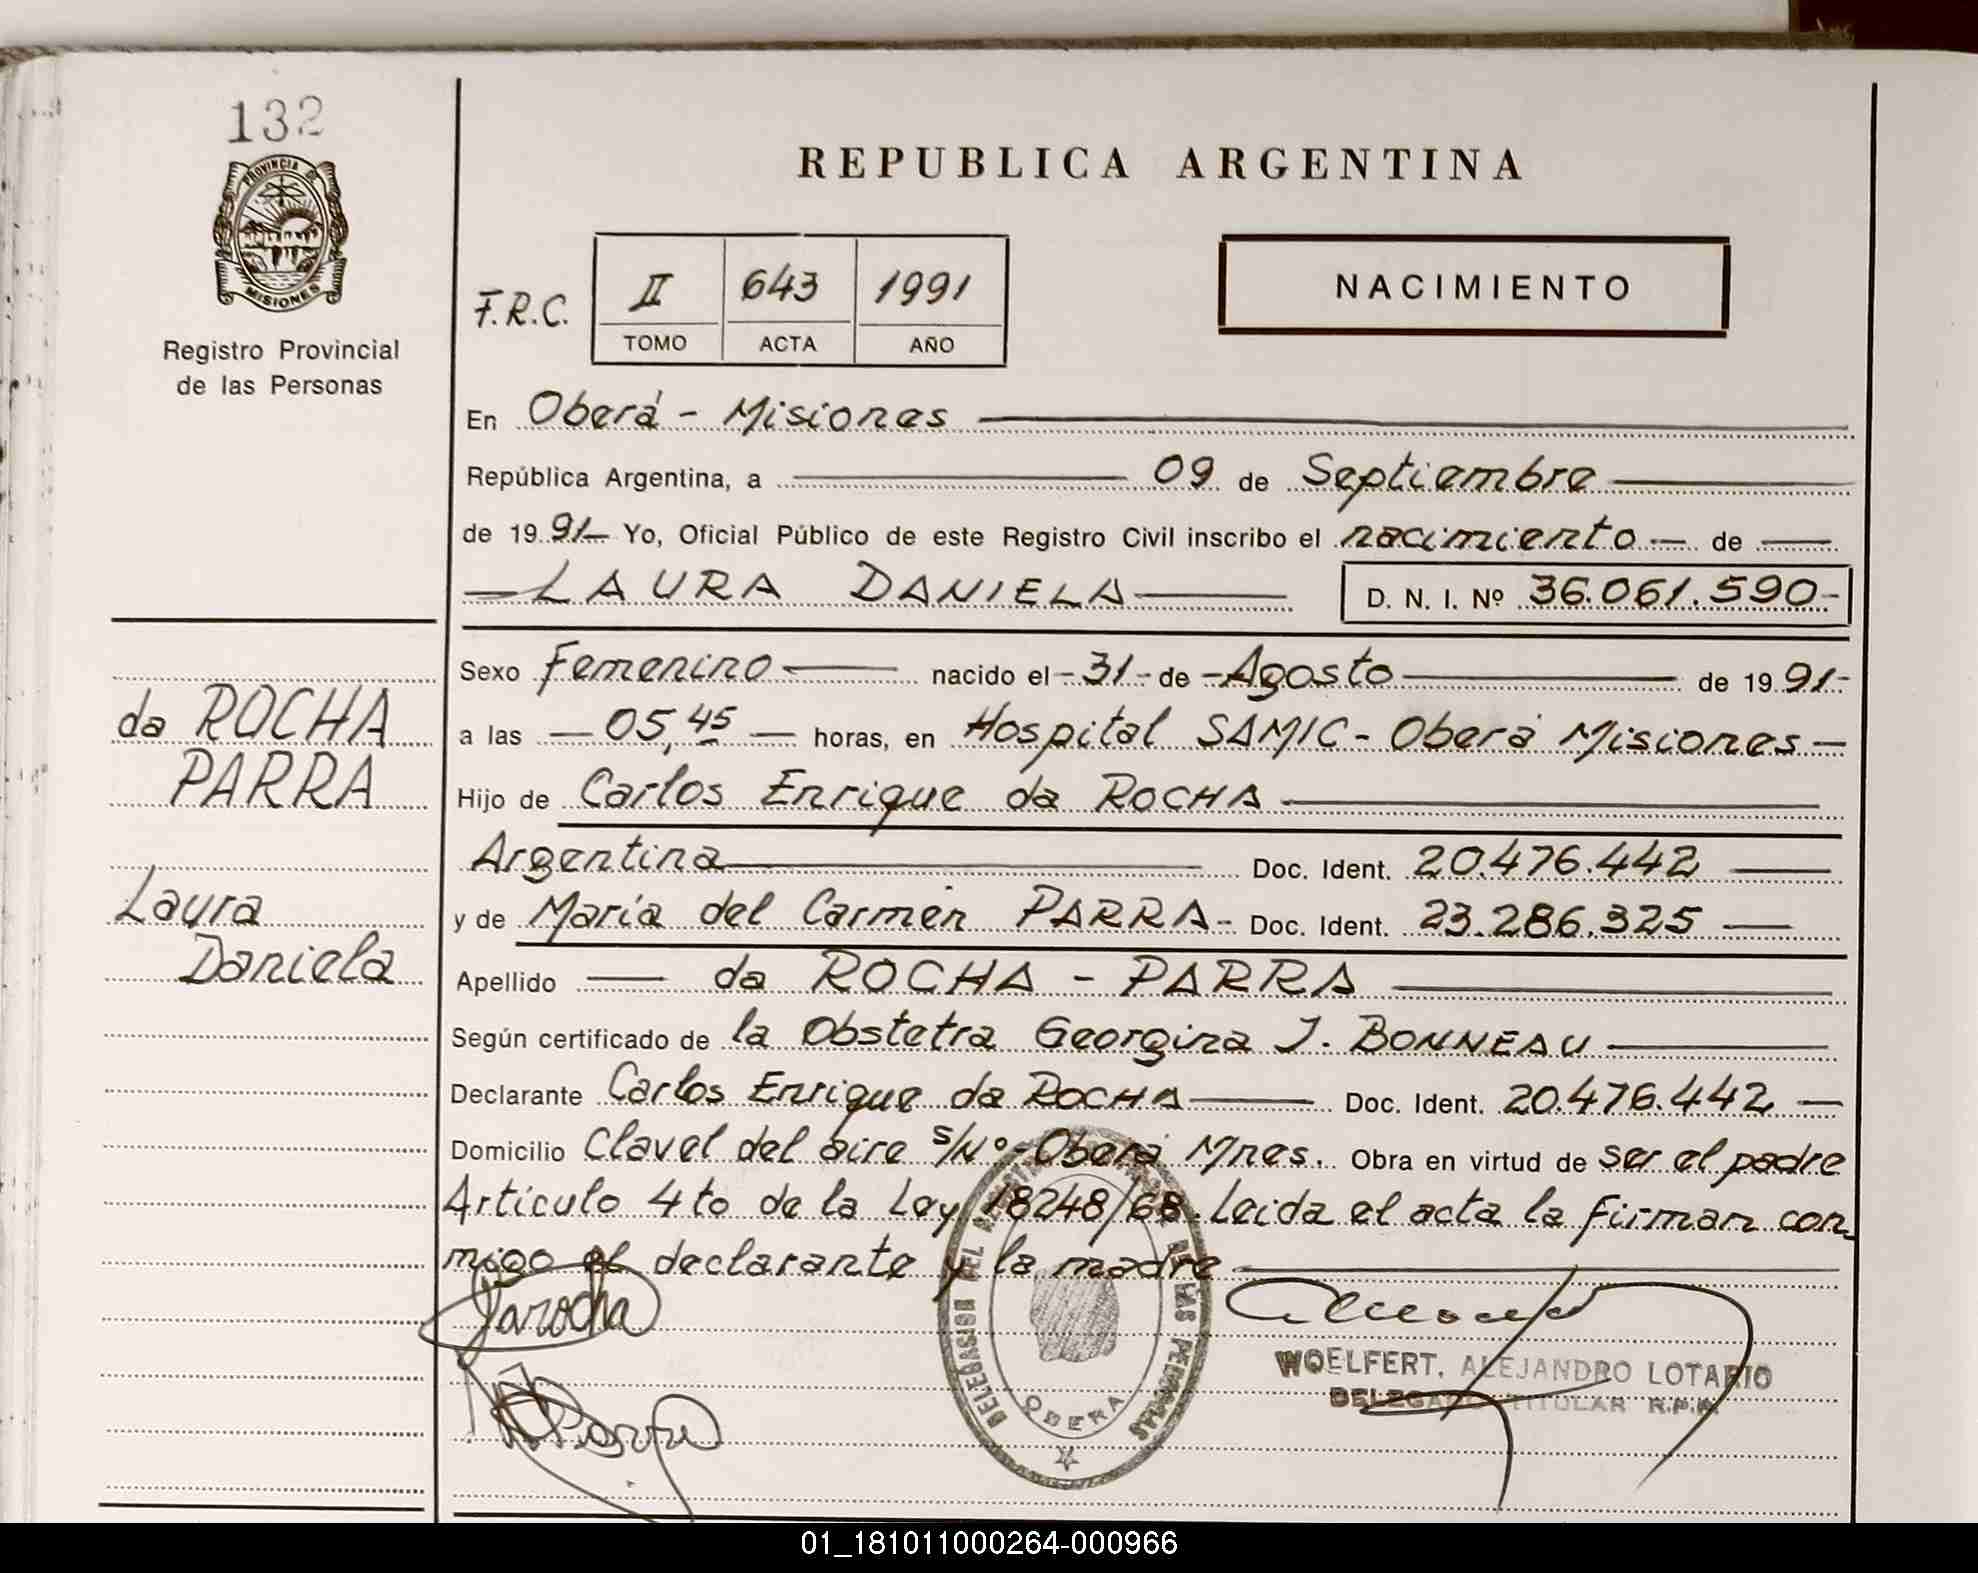 132
PROVINCIA DE
MISIONES
Registro Provincial
de las Personas
REPUBLICA ARGENTINA
F.R.C. II 643 1991
TOMO ACTA AÑO
NACIMIENTO
En Oberá - Misiones
República Argentina, a 09 de Septiembre
de 1991 Yo, Oficial Público de este Registro Civil inscribo el nacimiento de
LAURA DANIELA D. N. I. Nº 36.061.590-
da ROCHA
PARRA
Laura
Daniela
Sexo Femenino nacido el - 31 - de - Agosto de 1991-
a las 05,45 horas, en Hospital SAMIC - Oberá Misiones
Hijo de Carlos Enrique da ROCHA
Argentina Doc. Ident. 20.476.442
y de María del Carmen PARRA - Doc. Ident. 23.286.325
Apellido da ROCHA - PARRA
Según certificado de la Obstetra Georgina J. BONNEAU
Declarante Carlos Enrique da ROCHA Doc. Ident. 20.476.442
Domicilio Clavel del aire s/Nº - Oberá Mnes. Obra en virtud de ser el padre
Artículo 4to de la Ley 18248/68. Leida el acta la firman con_
migo el declarante y la madre
Darocha
Parra
DELEGASION DEL REGISTRO DE LAS PERSONAS
OBERA
WOELFERT, ALEJANDRO LOTARIO
DELEGADO TITULAR R.P.P.
01_181011000264-000966